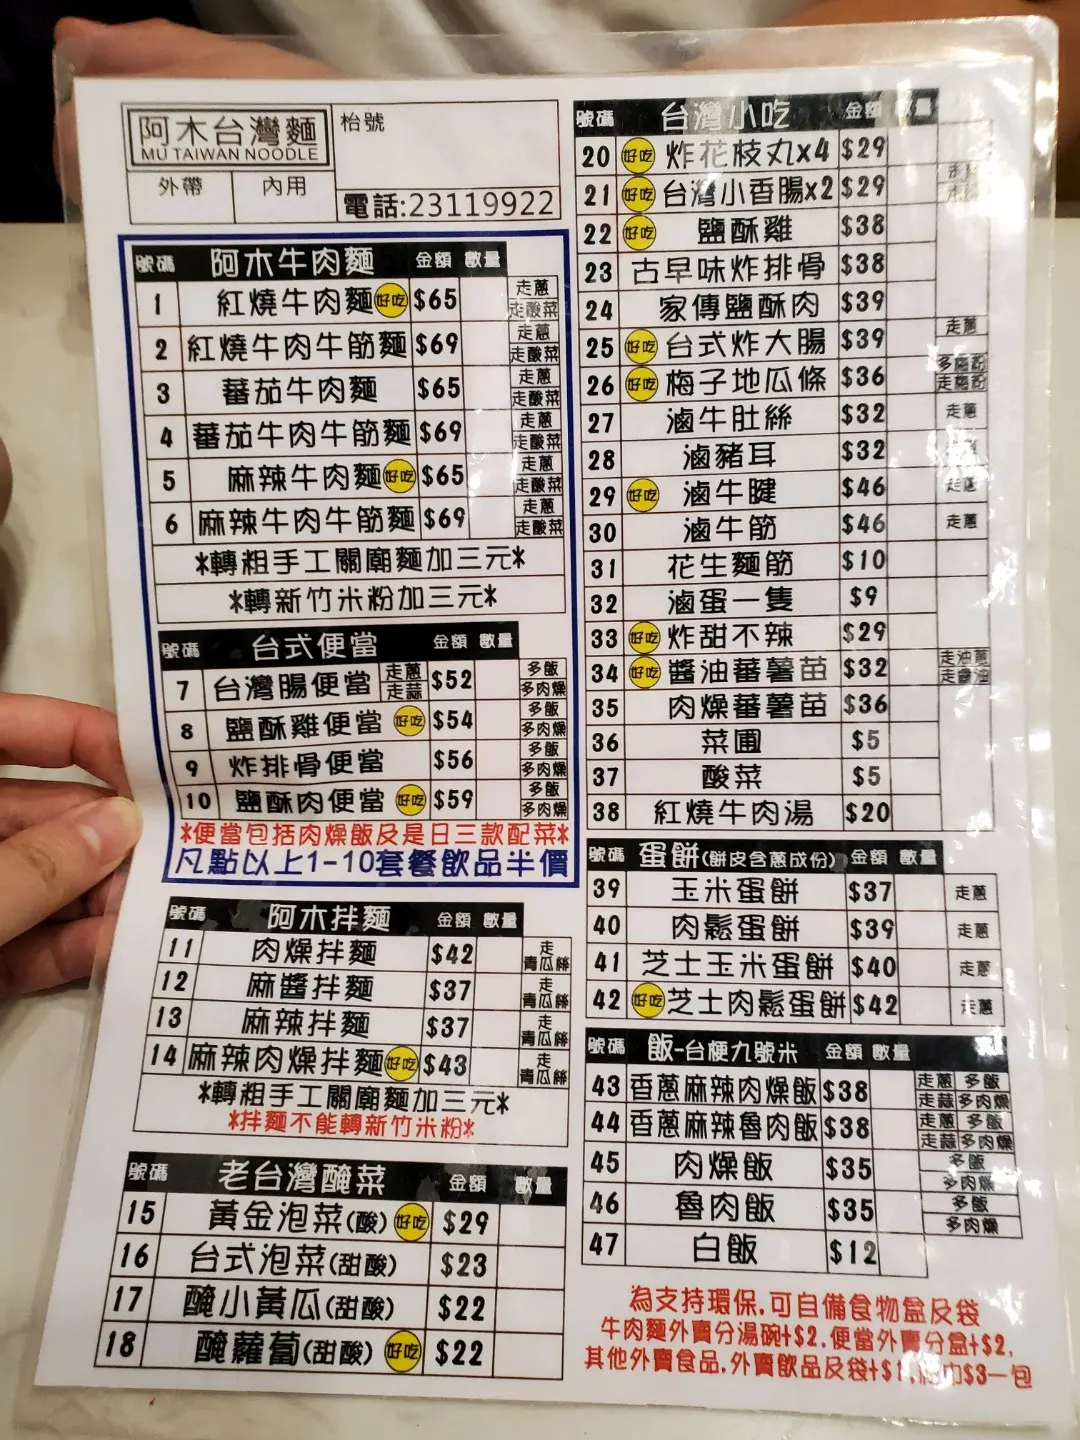 阿木台灣麵
MU TAIWAN NOODLE
枱號
外帶 內用
電話:23119922
號碼 阿木牛肉麵 金額 數量
1 紅燒牛肉麵 好吃 $65 走蔥 走酸菜
2 紅燒牛肉牛筋麵 $69 走蔥 走酸菜
3 蕃茄牛肉麵 $65 走蔥 走酸菜
4 蕃茄牛肉牛筋麵 $69 走蔥 走酸菜
5 麻辣牛肉麵 好吃 $65 走蔥 走酸菜
6 麻辣牛肉牛筋麵 $69 走蔥 走酸菜
*轉粗手工關廟麵加三元*
*轉新竹米粉加三元*
號碼 台式便當 金額 數量
7 台灣腸便當 走蔥 走蒜 $52 多飯 多肉燥
8 鹽酥雞便當 好吃 $54 多飯 多肉燥
9 炸排骨便當 $56 多飯 多肉燥
10 鹽酥肉便當 好吃 $59 多飯 多肉燥
*便當包括肉燥飯及是日三款配菜*
凡點以上1-10套餐飲品半價
號碼 阿木拌麵 金額 數量
11 肉燥拌麵 $42 走青瓜絲
12 麻醬拌麵 $37 走青瓜絲
13 麻辣拌麵 $37 走青瓜絲
14 麻辣肉燥拌麵 好吃 $43 走青瓜絲
*轉粗手工關廟麵加三元*
*拌麵不能轉新竹米粉*
號碼 老台灣醃菜 金額 數量
15 黃金泡菜(酸) 好吃 $29
16 台式泡菜(甜酸) $23
17 醃小黃瓜(甜酸) $22
18 醃蘿蔔(甜酸) 好吃 $22
號碼 台灣小吃 金額 數量
20 好吃 炸花枝丸x4 $29
21 好吃 台灣小香腸x2 $29
22 好吃 鹽酥雞 $38
23 古早味炸排骨 $38
24 家傳鹽酥肉 $39
25 好吃 台式炸大腸 $39 走蔥
26 好吃 梅子地瓜條 $36 多梅粉 走梅粉
27 滷牛肚絲 $32 走蔥
28 滷豬耳 $32
29 好吃 滷牛腱 $46 走蔥
30 滷牛筋 $46 走蔥
31 花生麵筋 $10
32 滷蛋一隻 $9
33 好吃 炸甜不辣 $29
34 好吃 醬油蕃薯苗 $32 走油蔥 走醬油
35 肉燥蕃薯苗 $36
36 菜圃 $5
37 酸菜 $5
38 紅燒牛肉湯 $20
號碼 蛋餅(餅皮含蔥成份) 金額 數量
39 玉米蛋餅 $37 走蔥
40 肉鬆蛋餅 $39 走蔥
41 芝士玉米蛋餅 $40 走蔥
42 好吃 芝士肉鬆蛋餅 $42 走蔥
號碼 飯-台梗九號米 金額 數量
43 香蔥麻辣肉燥飯 $38 走蔥 多飯 走蒜 多肉燥
44 香蔥麻辣魯肉飯 $38 走蔥 多飯 走蒜 多肉燥
45 肉燥飯 $35 多飯 多肉燥
46 魯肉飯 $35 多飯 多肉燥
47 白飯 $12
為支持環保.可自備食物盒及袋
牛肉麵外賣分湯碗+$2.便當外賣分盒+$2.
其他外賣食品.外賣飲品及袋+$1.巾$3一包